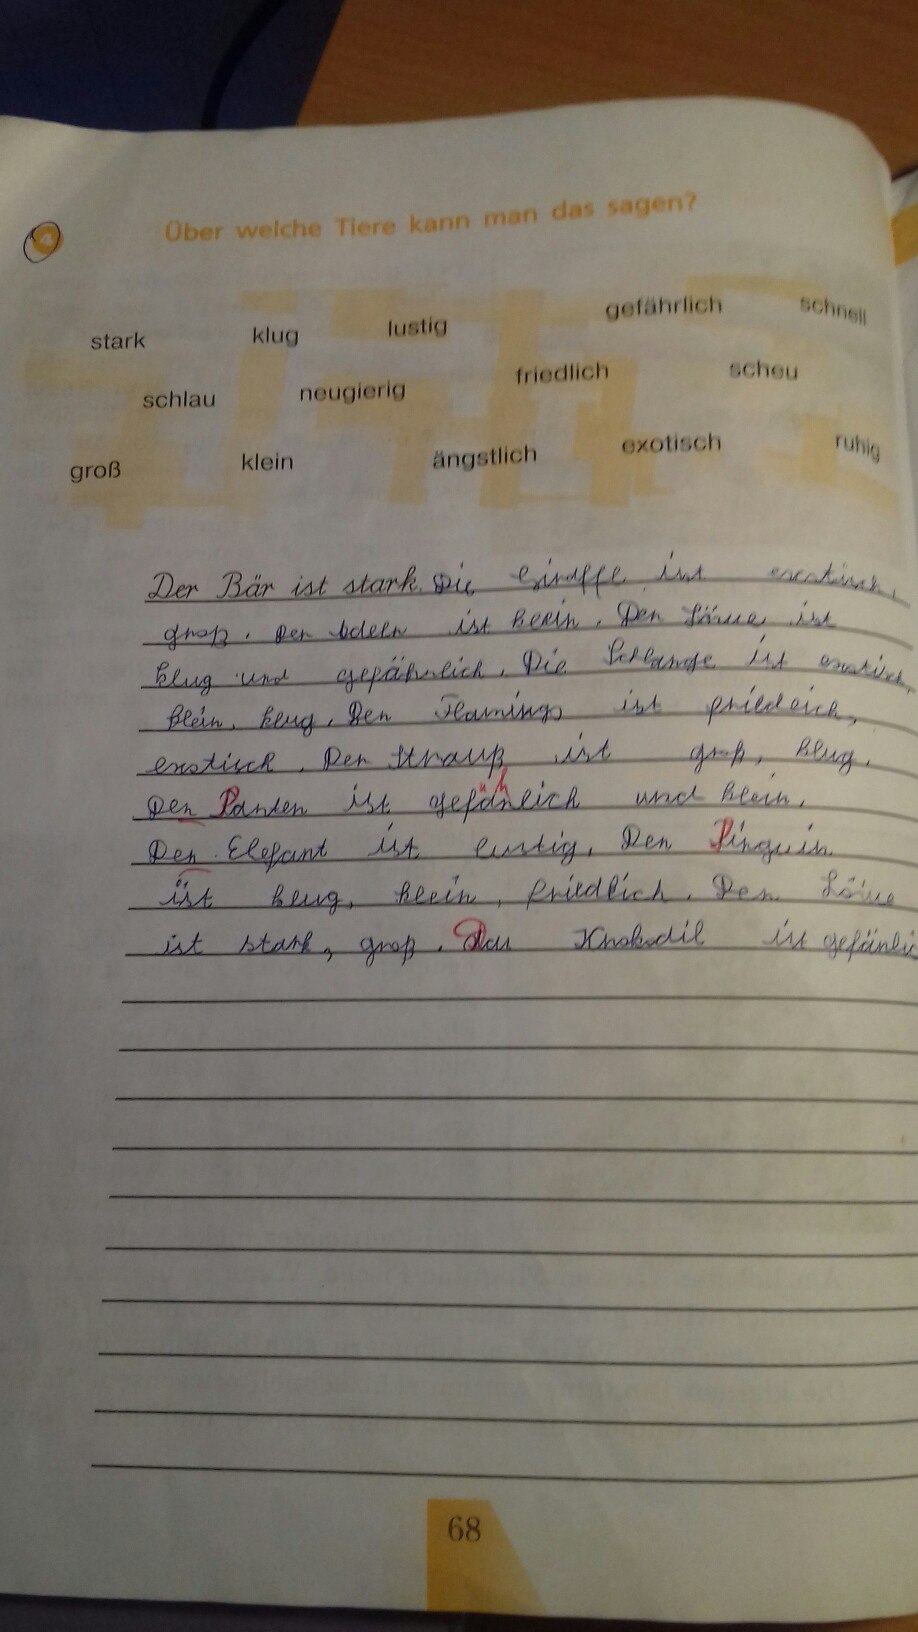 4 Über welche Tiere kann man das sagen?
stark klug lustig gefährlich schnell
schlau neugierig friedlich scheu
groß klein ängstlich exotisch ruhig
Der Bär ist stark. Die Giraffe ist exotisch,
groß. Der ist klein. Der Löwe ist
klug und gefährlich. Die Schlange ist exotisch,
klein, klug. Der Flamingo ist friedlich,
exotisch. Der Strauß ist groß, klug.
Der Panter ist gefänlich und klein.
Der Elefant ist lustig. Der Pinguin
ist klug, klein, friedlich. Der Löwe
ist stark, groß. Das Krokodil ist gefänlic
68